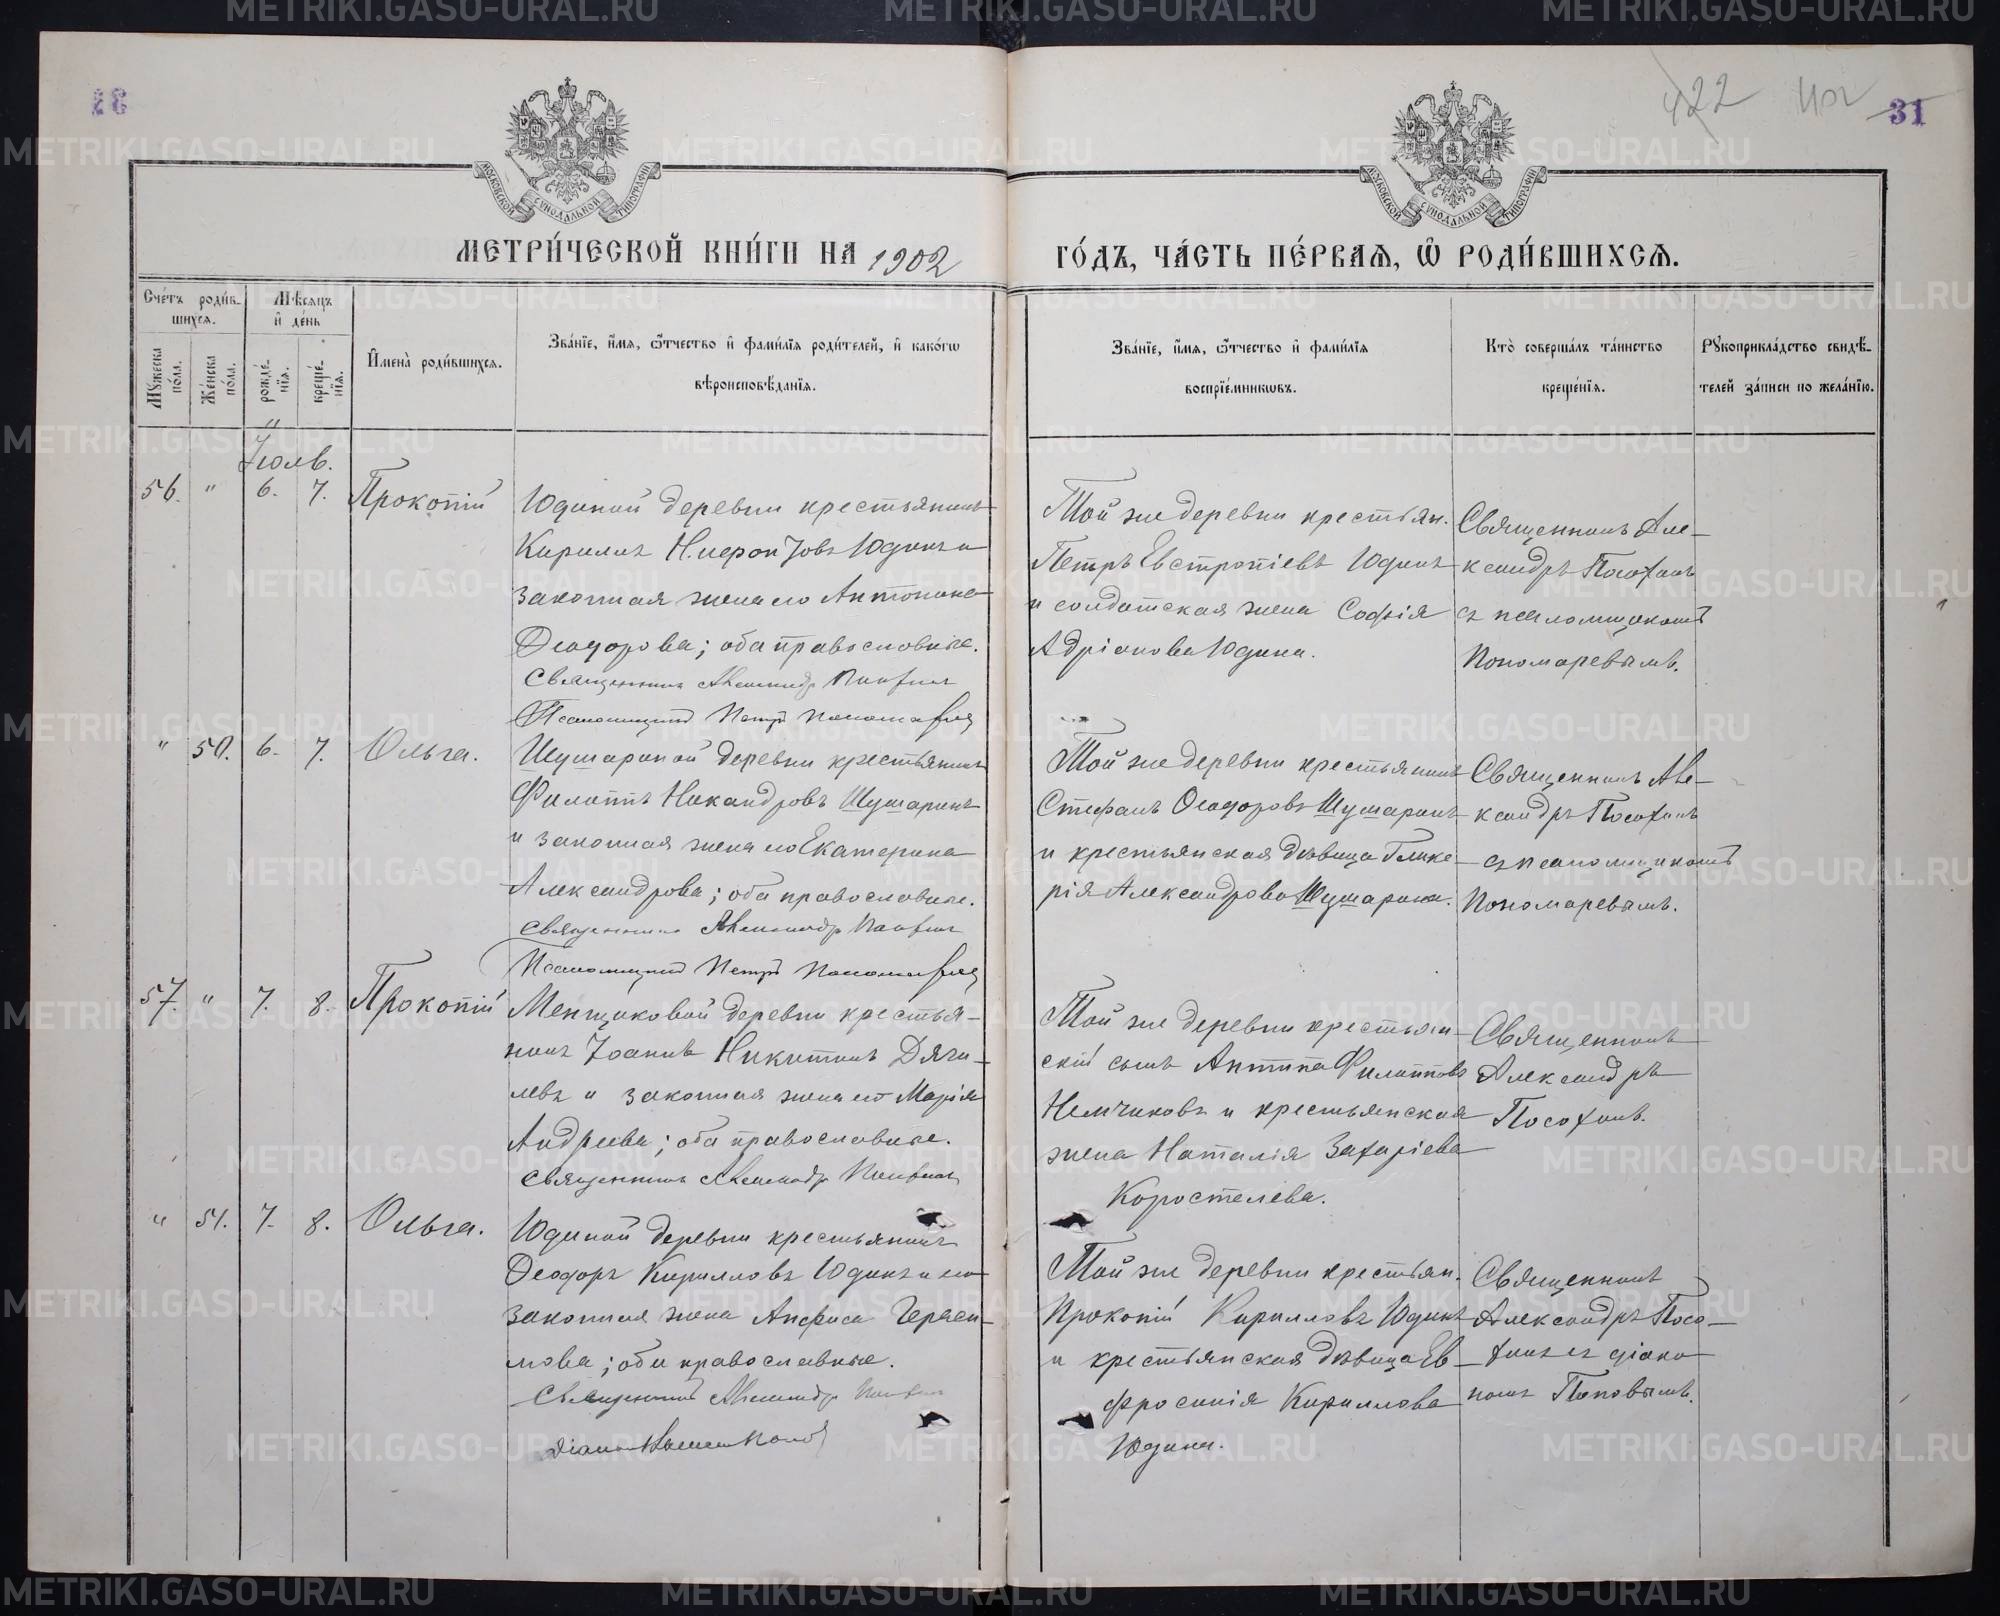 31
422
402
МОСКОВСКОЙ СѴНОДАЛЬНОЙ ТИПОГРАФІИ
МОСКОВСКОЙ СѴНОДАЛЬНОЙ ТИПОГРАФІИ
МЕТРИ́ЧЕСКОЙ КНИ́ГИ НА 1902
ГО́ДЪ, ЧА́СТЬ ПЕ́РВАѦ, Ѽ РОДИ́ВШИХСѦ.
Сче́тъ роди́в-
шихсѧ.
Мѣсѧцъ
и҆ де́нь
Мꙋжеска
по́ла.
Же́нска
по́ла.
рожде́-
нїѧ.
креще́-
нїѧ.
И҆мена̀ роди́вшихсѧ.
Зва́нїе, и҆́мѧ, ѻ҆́тчество и҆ фами́лїѧ роди́телей, и҆ како́гѡ
вѣроисповѣ́данїѧ.
Зва́нїе, и҆́мѧ, ѻ҆́тчество и҆ фами́лїѧ
воспрїе́мникѡвъ.
Кто̀ соверша́лъ та́инство
креще́нїѧ.
Рꙋкоприкла́дство свидѣ́-
телей за́писи по жела́нїю.
Іюль.
56. " 6. 7. Прокопій
Юдиной деревни крестьянинъ
Кириллъ Ниерои Іовъ Юдинъ и
законная жена его Антонина
Ѳеодорова; оба православные.
Священникъ Александръ Посохинъ
Псаломщикъ Петръ Пономаревъ
Той же деревни крестьян.
Петръ Евстропіевъ Юдинъ
и солдатская жена Софія
Адріанова Юдина.
Священникъ Але-
ксандръ Посохинъ
съ псаломщикомъ
Пономаревымъ.
" 50. 6. 7. Ольга.
Шушариной деревни крестьянинъ
Филиппъ Никандровъ Шушаринъ
и законная жена его Екатерина
Александрова; оба православные.
Священникъ Александръ Посохинъ
Псаломщикъ Петръ Пономаревъ
Той же деревни крестьянинъ
Стефанъ Ѳеодоровъ Шушаринъ
и крестьянская дѣвица Глике-
рія Александрова Шушарина.
Священникъ Але-
ксандръ Посохинъ
съ псаломщикомъ
Пономаревымъ.
57. " 7. 8. Прокопій
Менщиковой деревни крестья-
нинъ Іоаннъ Никитинъ Дяги-
левъ и законная жена его Марія
Андреева; оба православные.
Священникъ Александръ Посохинъ
Той же деревни крестьян-
скій сынъ Антипа Филипповъ
Немчиновъ и крестьянская
жена Наталія Захаріева
Коростелева.
Священникъ
Александръ
Посохинъ.
" 51. 7. 8. Ольга.
Юдиной деревни крестьянинъ
Ѳеодоръ Кирилловъ Юдинъ и его
законная жена Анфиса Гераси-
мова; оба православные.
Священникъ Александръ Посохинъ
Той же деревни крестьян.
Прокопій Кирилловъ Юдинъ
и крестьянская дѣвица Ев-
фросинія Кириллова
Юдина.
Священникъ
Александръ Посо-
хинъ съ діако-
номъ Поповымъ.
METRIKI.GASO-URAL.RU